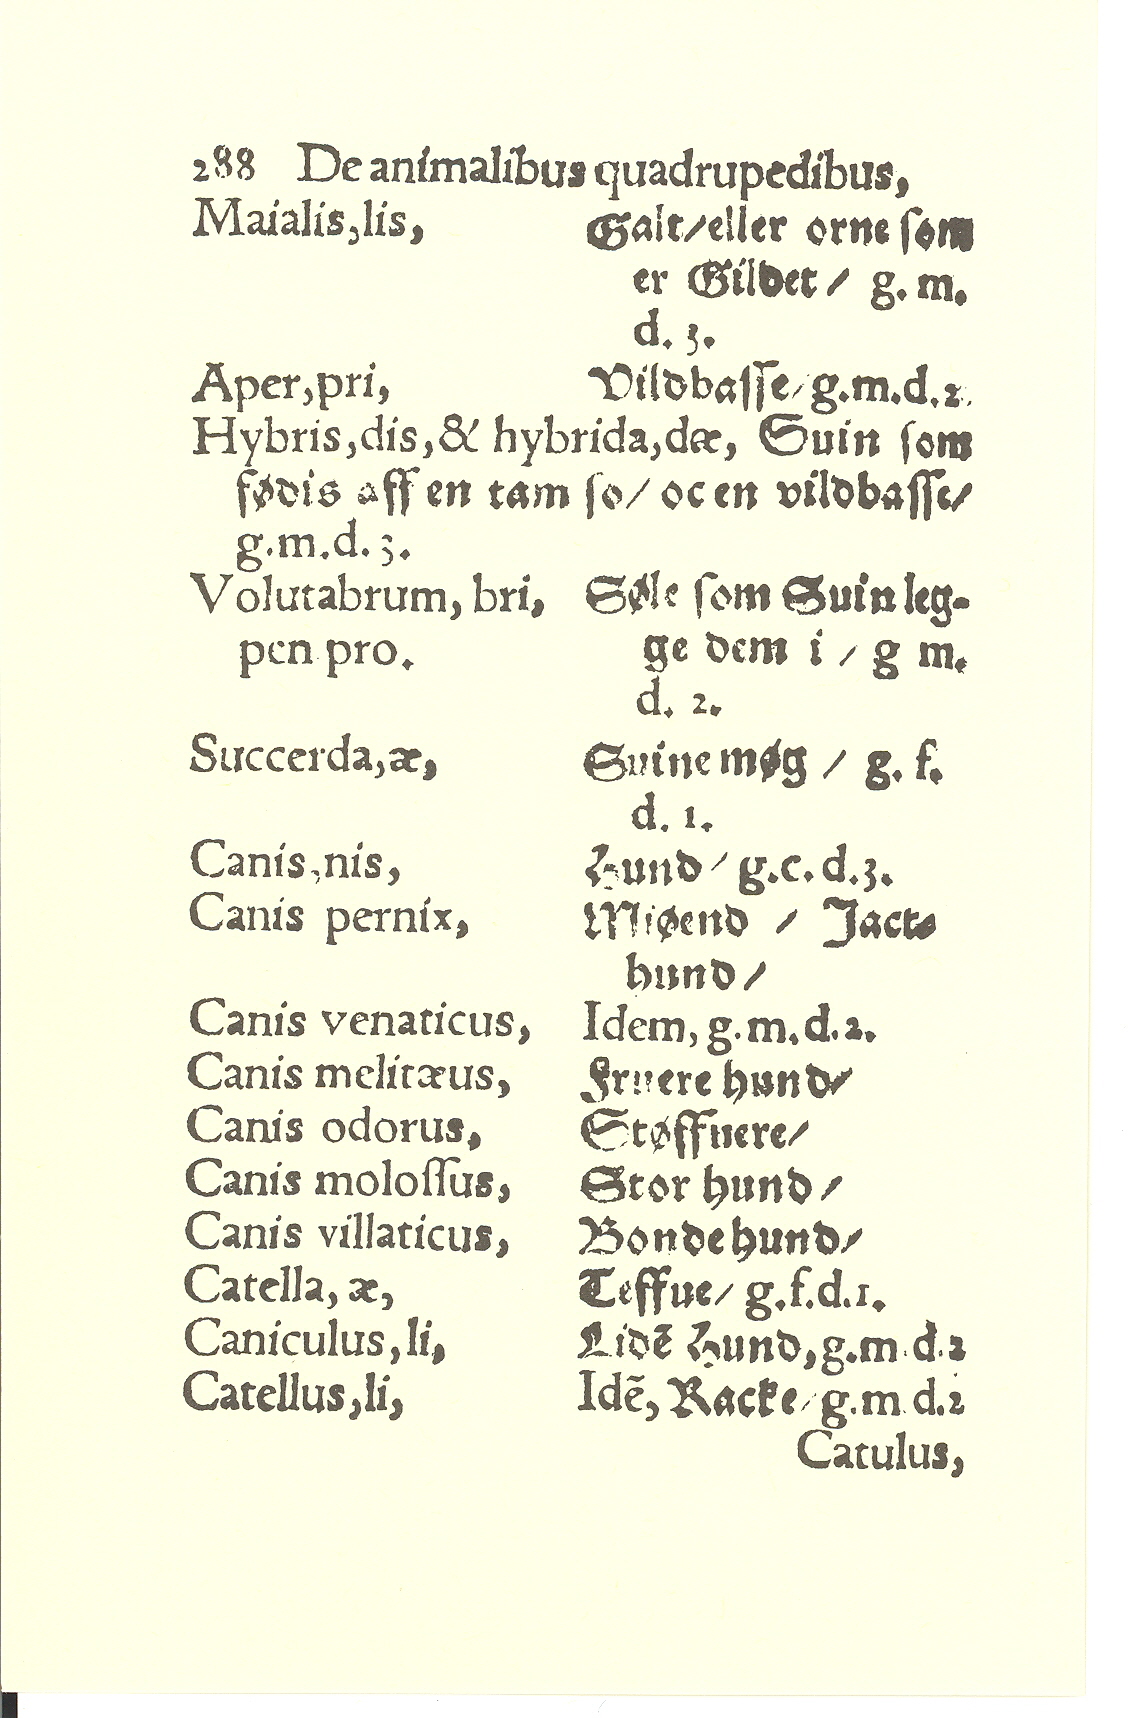 288 De animalibus quadrupedibus,
Maialis,lis, Galt/eller orne ſom
er Gildet / g. m.
d. 3.
Aper,pri, Vildbaſſe/g.m.d.2.
Hybris,dis,& hybrida,dæ, Suin ſom
fødis aff en tam ſo/ oc en vildbaſſe/
g.m.d. 3.
Volutabrum, bri, Søle ſom Suin leg-
pen pro. ge dem i / g m.
d. 2.
Succerda,æ, Suine møg / g. f.
d. 1.
Canis,nis, Hund/ g.c. d.3.
Canis pernix, Miøend / Jact-
hund/
Canis venaticus, Idem, g.m.d.2.
Canis melitæus, Fruere hund/
Canis odorus, Støffuere/
Canis moloſſus, Stor hund/
Canis villaticus, Bondehund/
Catella, æ, Teffue/ g.f.d.1.
Caniculus,li, Lidẽ Hund,g.m.d.2
Catellus,li, Idẽ, Racke/g.m.d.2
Catulus,